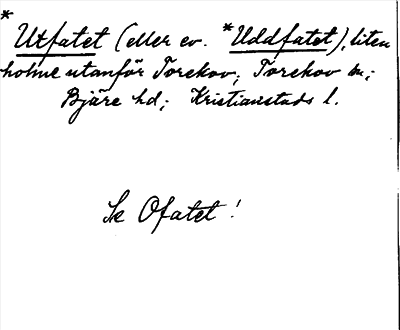 * Utfatet (eller ev. *Uddfatet), liten
holme utanför Torekov; Torekov sn;
Bjäre hd; Kristianstads l.
Se Ofatet!